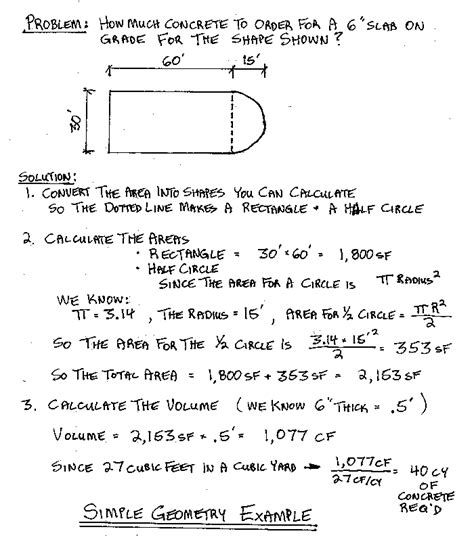 PROBLEM: HOW MUCH CONCRETE TO ORDER FOR A 6" SLAB ON
GRADE FOR THE SHAPE SHOWN?
60' 15'
30'
SOLUTION:
1. CONVERT THE AREA INTO SHAPES YOU CAN CALCULATE
SO THE DOTTED LINE MAKES A RECTANGLE + A HALF CIRCLE
2. CALCULATE THE AREAS
• RECTANGLE = 30' × 60' = 1,800 SF
• HALF CIRCLE
SINCE THE AREA FOR A CIRCLE IS π RADIUS²
WE KNOW:
π = 3.14 , THE RADIUS = 15', AREA FOR ½ CIRCLE = πR²/2
SO THE AREA FOR THE ½ CIRCLE IS 3.14 × 15'²/2 = 353 SF
SO THE TOTAL AREA = 1,800 SF + 353 SF = 2,153 SF
3. CALCULATE THE VOLUME (WE KNOW 6" THICK = .5')
VOLUME = 2,153 SF × .5' = 1,077 CF
SINCE 27 CUBIC FEET IN A CUBIC YARD → 1,077 CF/27 CF/CY = 40 CY
OF
CONCRETE
REQ'D
SIMPLE GEOMETRY EXAMPLE